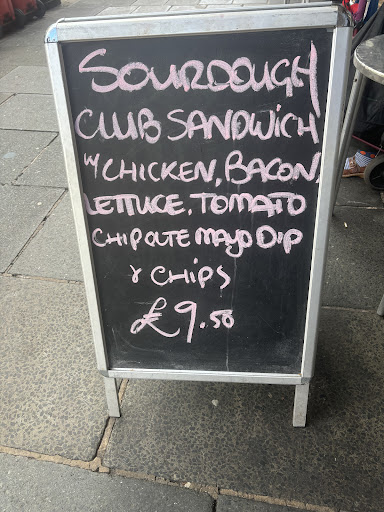 SOURDOUGH
CLUB SANDWICH
W/ CHICKEN, BACON,
LETTUCE, TOMATO
CHIPOTE MAYO DIP
& CHIPS
£9.50